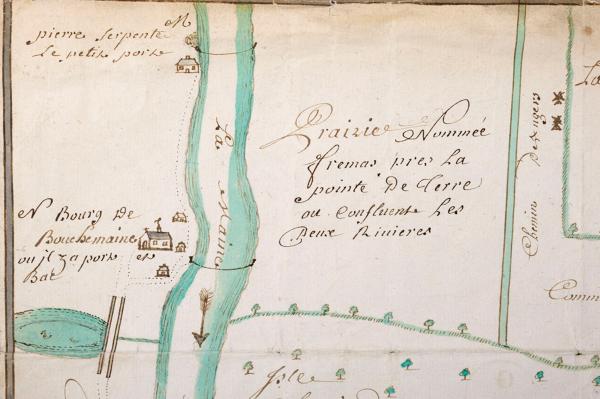 M
pierre Serpente
Le petit port
La Maine
Prairie Nommée
fremas pres La
pointe De Terre
au Confluent Les
Deux Rivieres
Chemin
Dangers
La
N Bourg De
Bouchemaine
ou il ya port et
Bac
Comm
Isle